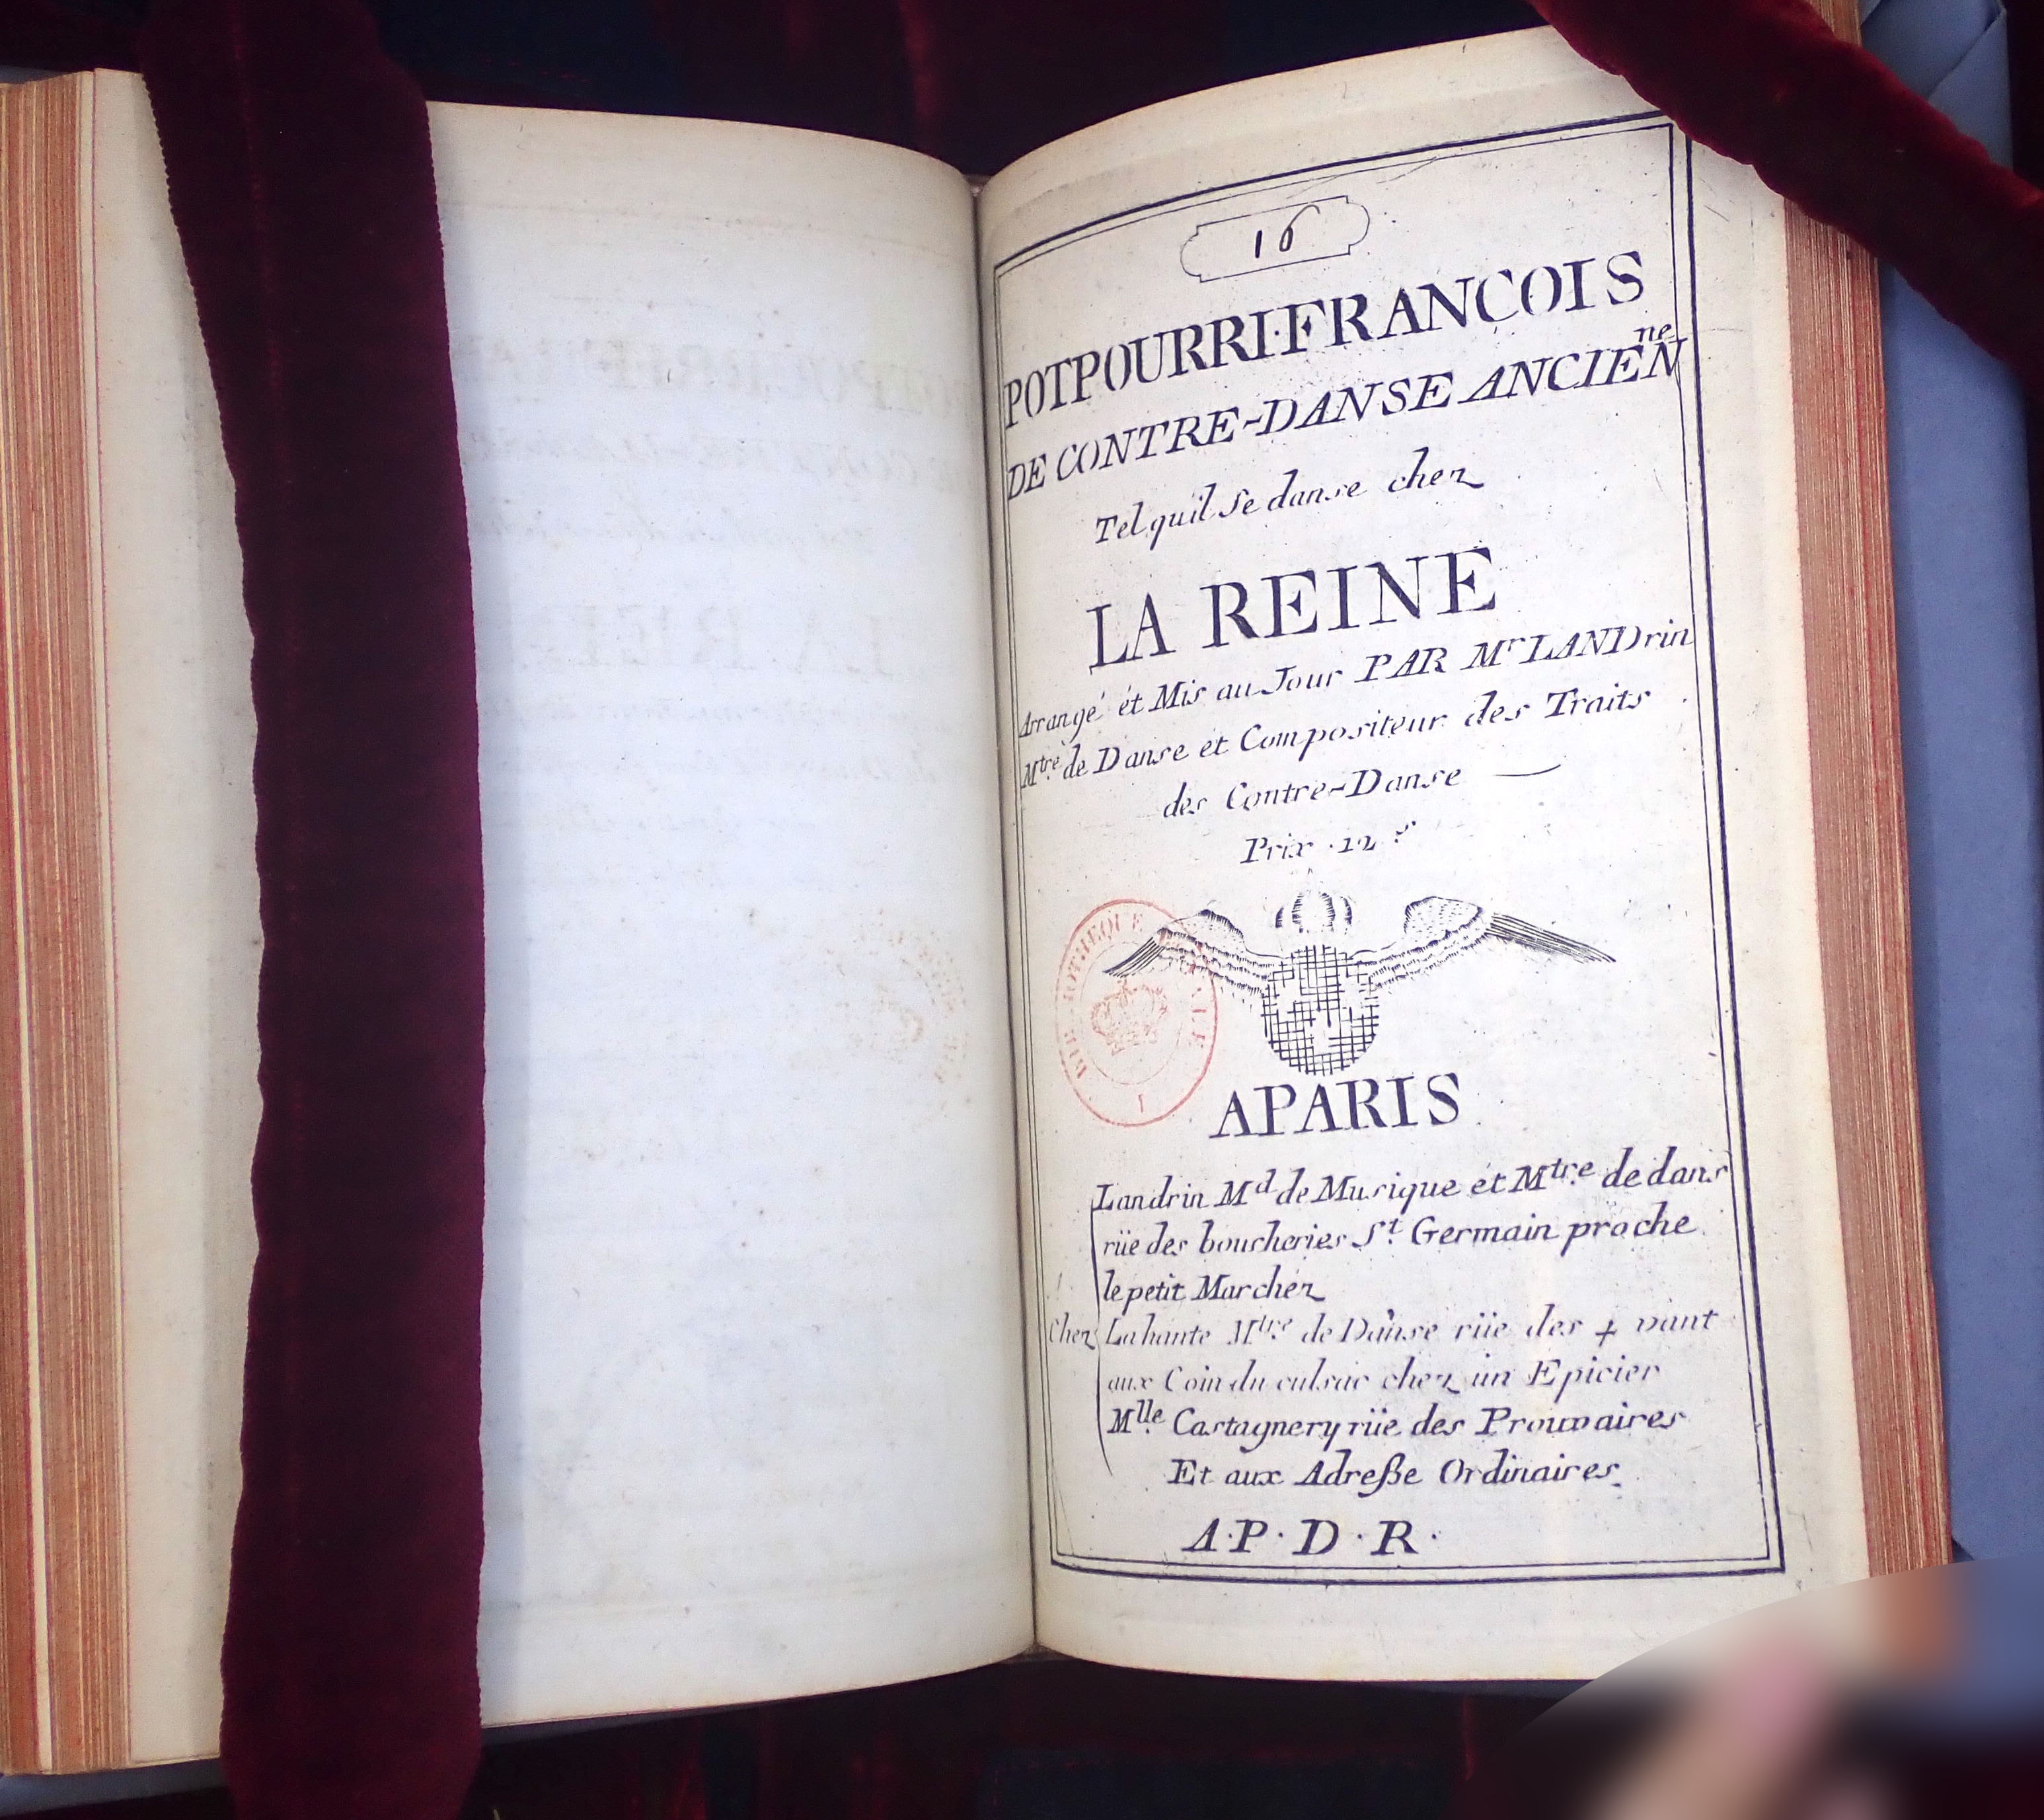 16
POTPOURRI·FRANÇOIS
DE CONTRE-DANSE ANCIENne
Tel quil Se danse chez
LA REINE
Arrangé ét Mis au Jour PAR Mr LANDrin
Mtre de Danse et Compositeur des Traits
des Contre-Danse
Prix ·12 s
BIBLIOTHEQUE ROYALE
I
APARIS
Landrin Md de Musique ét Mtre de dans
rüe des boucheries St Germain proche
le petit Marchéz
Chez Lahante Mtre de Danse rüe des 4 vant
aux Coin du culsac chez un Epicier
Mlle Castagnery rüe des Prouvaires
Et aux Adreße Ordinaires
A·P·D·R·